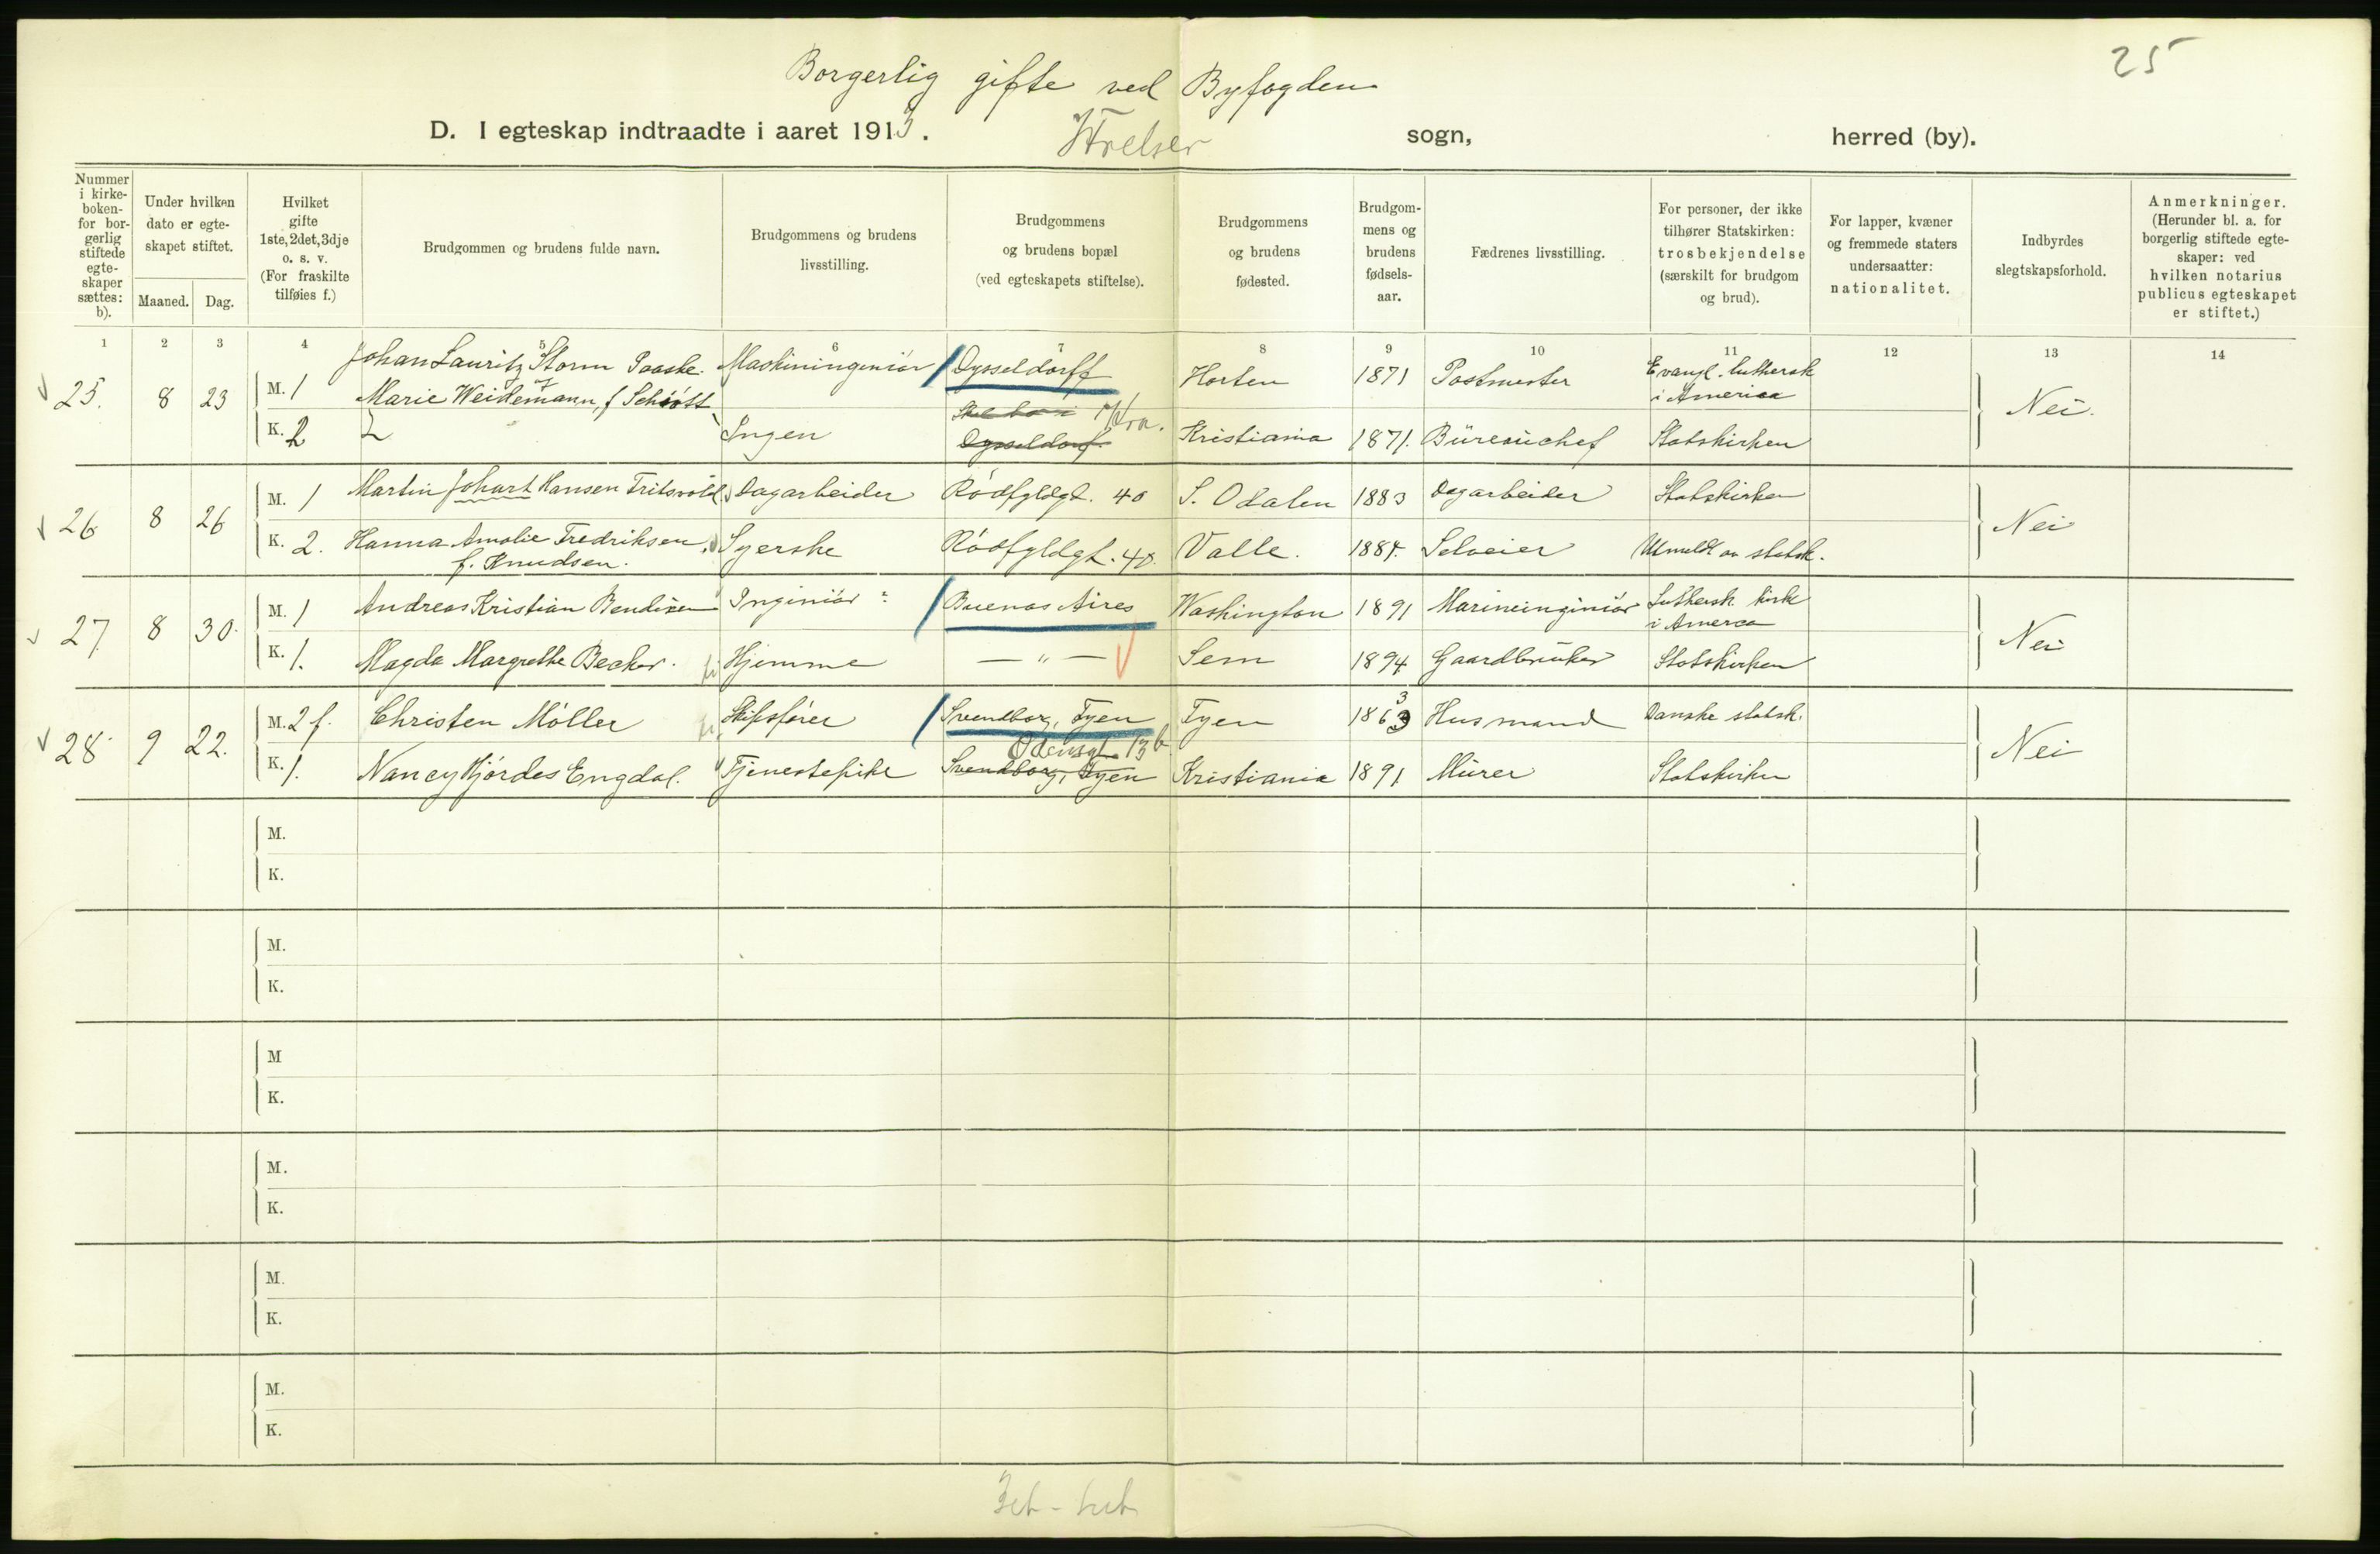 25
Borgerlig gifte ved Byfogden
D. I egteskap indtraadte i aaret 1913. sogn, herred (by).
Nummer i kirke-boken- for bor-gerlig stiftede egte-skaper sættes: b).
Under hvilken dato er egte-skapet stiftet.
Maaned. Dag.
Hvilket gifte 1ste, 2det, 3dje o. s. v. (For fraskilte tilføies f.)
Brudgommen og brudens fulde navn.
Brudgommens og brudens livsstilling.
Brudgommens og brudens bopæl (ved egteskapets stiftelse).
Brudgommens og brudens fødested.
Brudgom-mens og brudens fødsels-aar.
Fædrenes livsstilling.
For personer, der ikke tilhører Statskirken: trosbekjendelse (særskilt for brudgom og brud).
For lapper, kvæner og fremmede staters undersaatter: nationalitet.
Indbyrdes slegtskapsforhold.
Anmerkninger. (Herunder bl. a. for borgerlig stiftede egte-skaper: ved hvilken notarius publicus egteskapet er stiftet.)
1 2 3 4 5 6 7 8 9 10 11 12 13 14
25. 8 23 M. 1 Johan Lauritz Storm Paaske. Maskiningeniør Dysseldorff Horten 1871 Postmester Evangl. luthersk i America Nei.
K. 2 Marie Weidemann, f Schiøtt Ingen Dysseldorf Kra. Kristiania 1871. Büreauchef Statskirken
26 8 26 M. 1 Martin Johart Hansen Fritsvold Dagarbeider Rødfyldgt. 40 S. Odalen 1883 Dagarbeider Statskirken Nei
K. 2. Hanna Amalie Fredriksen, f. Knudsen. Syerske Rødfyldgt. 40. Valle. 1884. Selveier Utmeldt av statsk.
27 8 30. M. 1 Andreas Kristian Bendixen Inginiør Buenos Aires Washington 1891 Marineinginiør Luthersk kirke i Amerca Nei
K. 1. Magda Margrethe Becker. Hjemme — " — Sem 1894 Gaardbruker Statskirken
28 9 22. M. 2 f. Christen Møller Skibsfører Svendborg, Fyen Fyen 1863 3 Husmand Danske statsk. Nei
K. 1. Nancy Hjørdes Engdal. Tjenestepike Svendborg, Fyen Odensgt. 13 b Kristiania 1891 Mürer Statskirken
M.
K.
M.
K.
M
K.
M.
K.
M.
K.
M.
K.